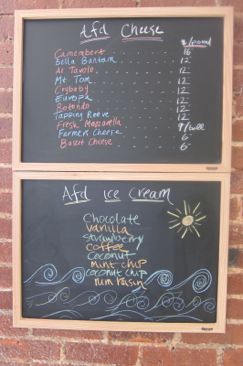 Afd Cheese
$/pound
Camembert 16
Bella Bantam 12
At Tavolo 12
Mt Tom 12
Crybaby 12
Europa 12
Rotondo 12
Tapping Reeve 12
Fresh Mozzarella 9/ball
Farmers Cheese 6
Basket Cheese 6
Afd ice Cream
Chocolate
Vanilla
Strawberry
Coffee
Coconut
Mint Chip
Coconut Chip
rum raisin